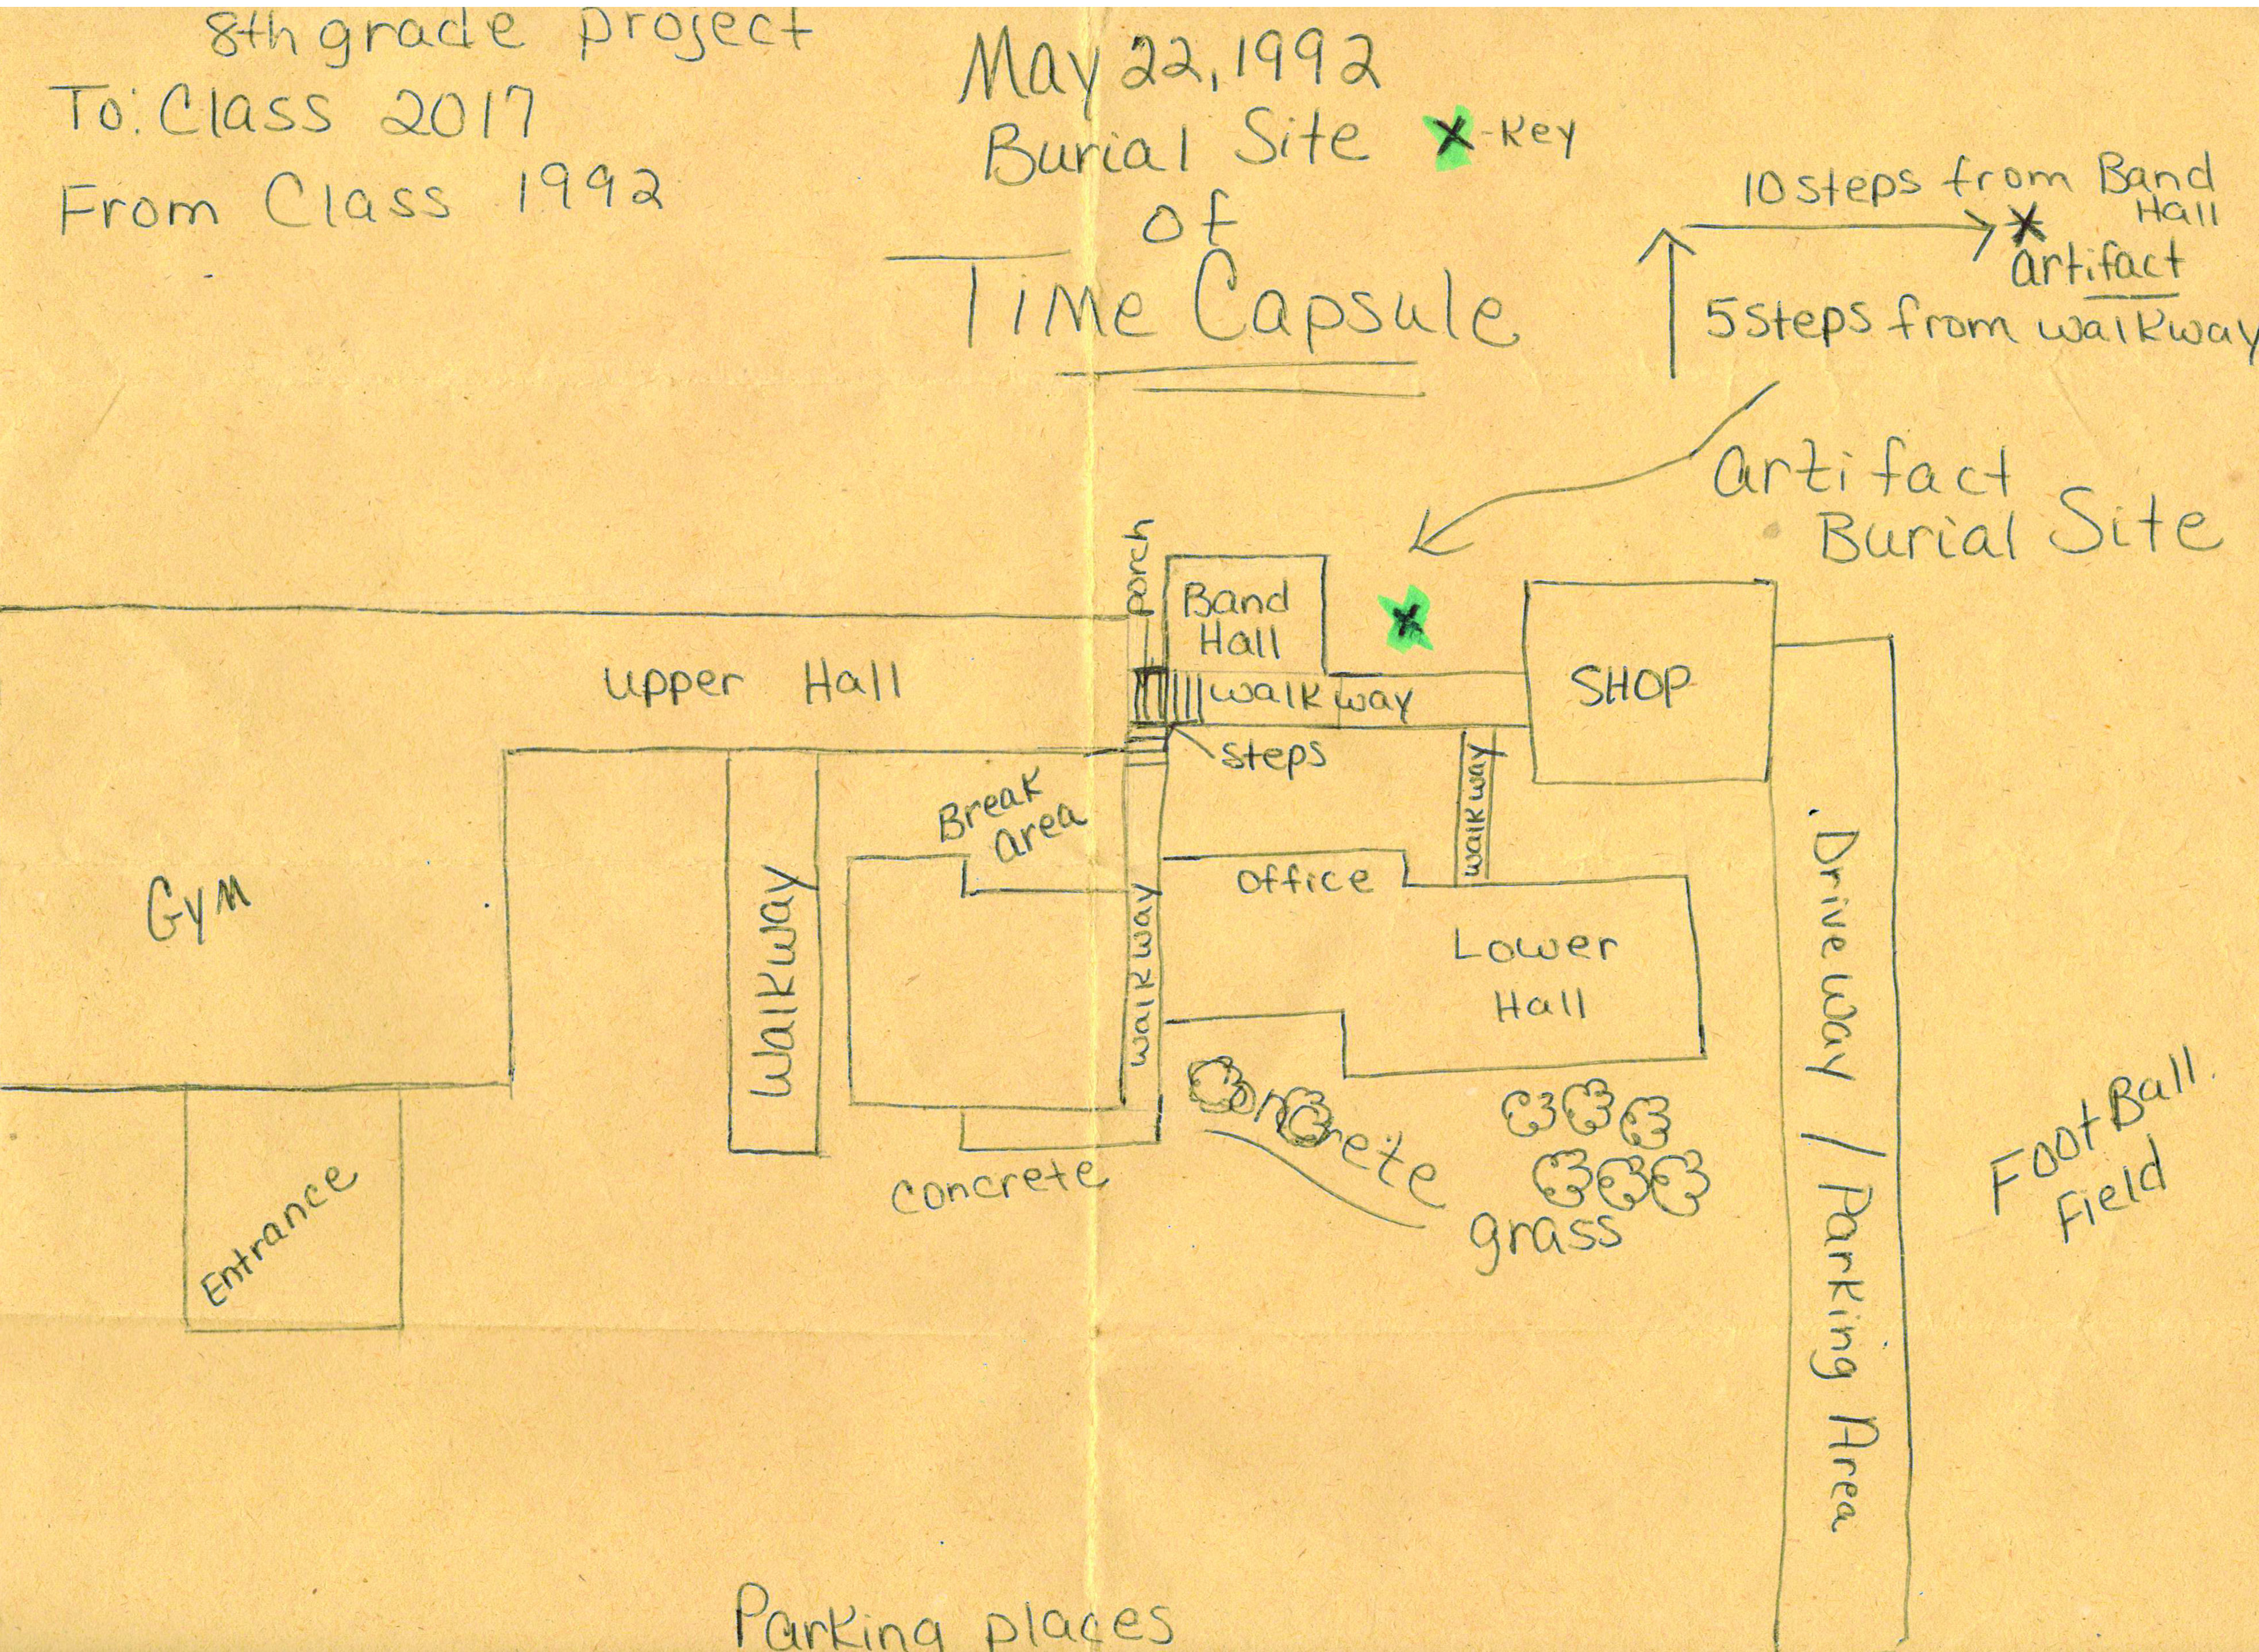 8th grade project
To: Class 2017
From Class 1992
May 22, 1992
Burial Site X - Key
of
Time Capsule
10 steps from Band
Hall
X
artifact
5 steps from walkway
artifact
Burial Site
porch
Band
Hall
X
upper Hall
walkway
SHOP
steps
Break
area
walkway
office
Gym
walkway
walkway
Lower
Hall
Driveway / Parking Area
concrete
concrete
grass
Foot Ball
Field
Entrance
Parking places